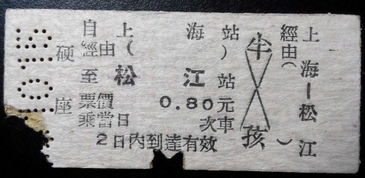 自 上 海 站
經由（ ）
至 松 江 站
硬座 票價 0.80元
乘當日 次車
2日內到達有效
半孩
經由（上海－松江）